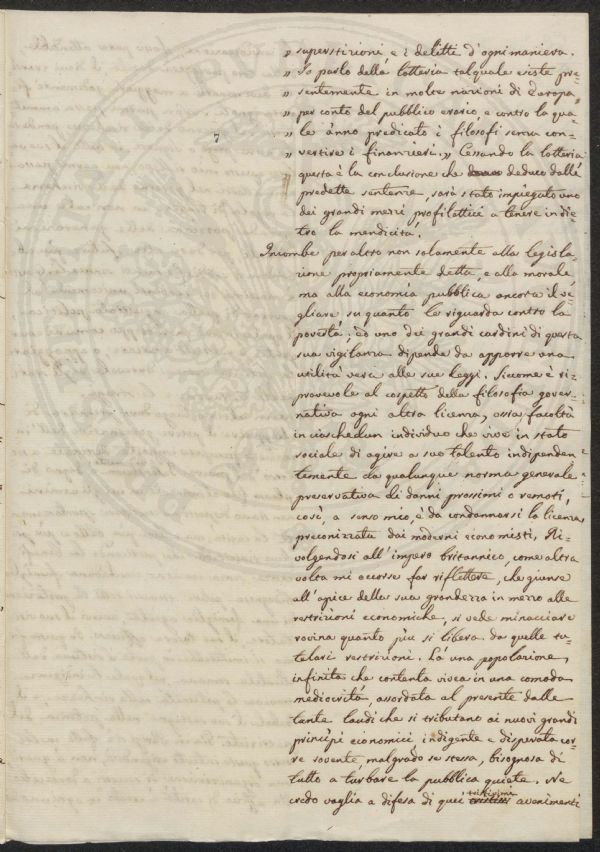 „ superstizioni e i delitti d'ogni maniera.
„ Io parlo della lotteria tal quale esiste pre=
„ sentemente in molte nazioni di Europa,
„ per conto del pubblico erario, e contro la qua=
7
„ le ànno predicato i filosofi senza con=
„ vertire i finanzieri. „ Cessando la lotteria
questa è la conclusione che deduco dalle
predette sentenze, sarà stato impiegato uno
dei grandi mezzi profilattici a tenere indie=
tro la mendicità.
Incombe per altro non solamente alla legisla=
zione propriamente detta, e alla morale,
ma alla economia pubblica ancora il ve=
gliare su quanto le riguarda contro la
povertà; ed uno dei grandi cardini di questa
sua vigilanza dipende da apporre una
utilità vera alle sue leggi. Siccome è ri=
provevole al cospetto della filosofia gover=
nativa ogni altra licenza, ossia facoltà
in ciaschedun individuo che vive in stato
sociale di agire a suo talento indipenden=
temente da qualunque norma generale
preservativa di danni prossimi o remoti,
così, a senso mio, è da condannarsi la licenza
preconizzata dai moderni economisti. Ri=
volgendosi all'impero britannico, come altra
volta mi occorse far riflettere, che giunse
all'apice della sua grandezza in mezzo alle
restrizioni economiche, si vede minacciare
rovina quanto più si libera da quelle tu=
telari restrizioni. Là una popolazione
infinita che contenta vivea in una comoda
mediocrità, assordata al presente dalle
tante laudi che si tributano ai nuovi grandi
principi economici indigente e disperata cor=
re sovente, malgrado se stessa, bisognosa di
tutto a turbare la pubblica quiete. Ne
credo vaglia a difesa di quei tristissimi avenimenti